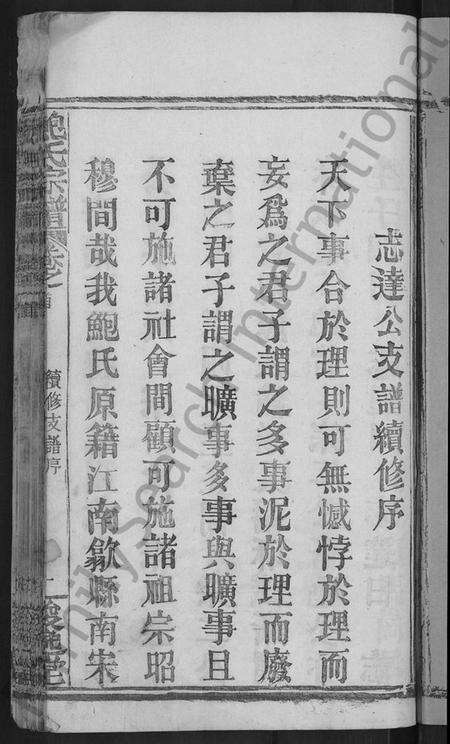 志達公支譜續修序
天下事合於理則可無憾悖於理而
妄爲之君子謂之多事泥於理而廢
棄之君子謂之曠事多事與曠事且
不可施諸社會間顧可施諸祖宗昭
穆間哉我鮑氏原籍江南歙縣南宋
鮑氏宗譜卷之首
續修支譜序
二
Search International